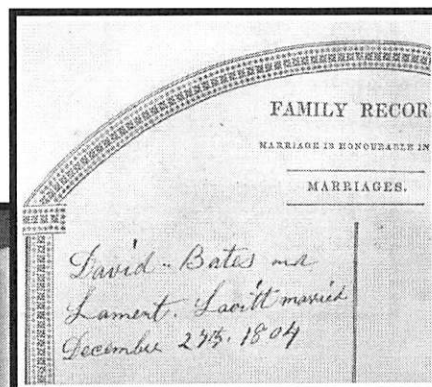 FAMILY RECOR
MARRIAGE IS HONOURABLE IN
MARRIAGES.
David Bates and
Lament. Lavitt married
December 27th. 1804